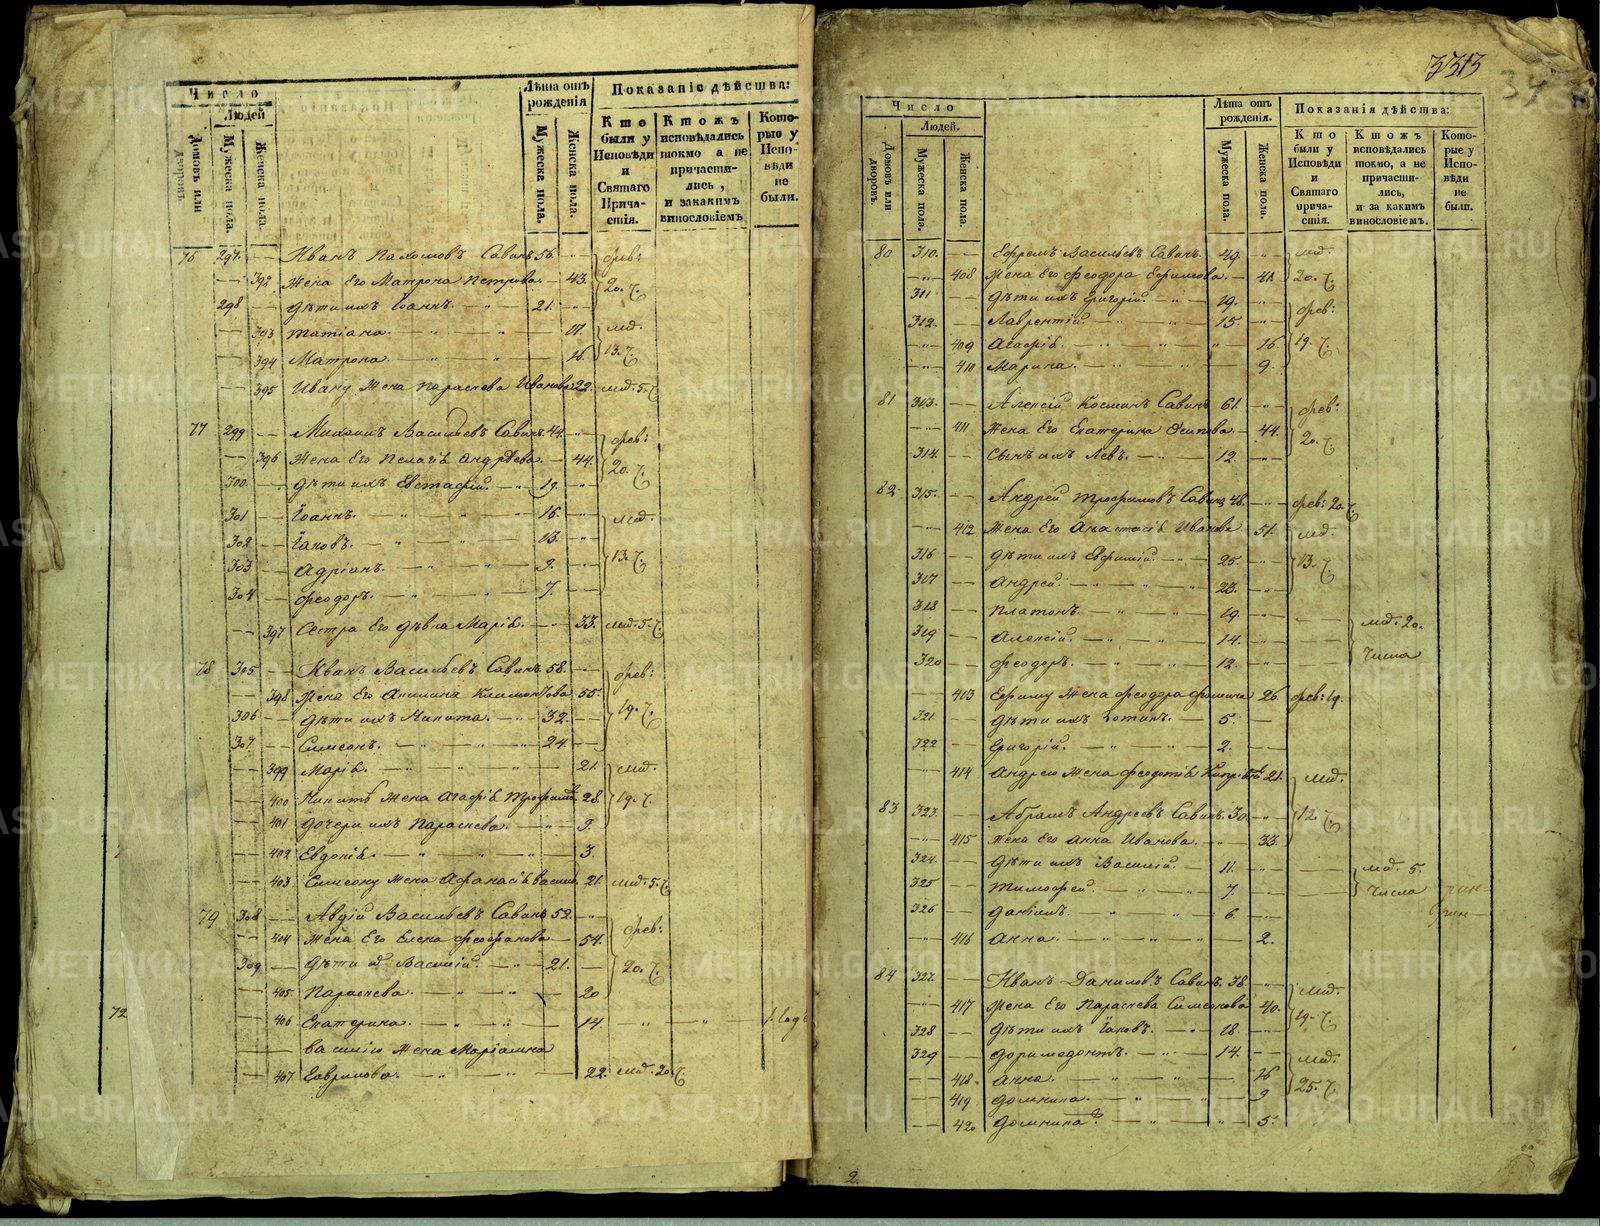 Число
Людей
Домовъ или дворовъ.
Мужеска пола.
Женска пола.
Лѣта отъ рожденія
Мужеска пола.
Женска пола.
Показаніе дѣйства:
Кто были у Исповѣди и Святаго Прича-стія.
Ктожъ исповѣдались токмо а не причасти-лись, и закакимъ винословіемъ
Кото-рые у Испо-вѣди не были.
76 297. Иванъ Пахомовъ Савинъ 56. февр:
392 Жена Его Матрона Петрова. 43. 20.
298 дѣти ихъ Іоаннъ. 21.
393 Татіана. 17. мар.
394 Матрона. 16. 13.
395 Ивану Жена Параскева Иванова 22. мар. 5.
77 299 Михаилъ Васильевъ Савинъ 44. февр:
396 Жена Его Пелагія Андрѣева. 44. 20.
300. дѣти ихъ Евстафій. 19.
301 Іоаннъ. 16. мар.
302 Іаковъ. 13.
303 Адріанъ. 9. 13.
304 Феодоръ. 7.
397 Сестра Его дѣвка Марія. 33. мар. 5.
78 305 Иванъ Васильевъ Савинъ 58. февр:
398 Жена Его Акилина Климонтова 55. 19.
306 дѣти ихъ Никита. 32.
307 Симеонъ. 24.
399 Марія. 21. мар.
400 Никитѣ Жена Агафія Трофим. 28. 19.
401 дочери ихъ Параскева. 9.
402 Евдокія. 3.
403 Симеону Жена Афанасія Васил. 21. мар. 5.
79 308 Авдій Васильевъ Савинъ 52. февр:
404 Жена Его Елена Феофанова 54.
309 дѣти их Василій. 21. 20.
405 Параскева. 20
406 Екатерина. 14.
72
Василію Жена Маріамна
407 Гаврилова. 22. мар. 20.
3313
Число
Людей.
Домовъ или дворовъ.
Мужеска пола.
Женска пола.
Лѣта отъ рожденія.
Мужеска пола.
Женска пола.
Показанія дѣйства:
Кто были у Исповѣди и Святаго прича-стія.
Ктожъ исповѣдались токмо, а не причасти-лись, и за какимъ винословіемъ.
Кото-рые у Испо-вѣди не были.
80 310. Ефремъ Васильевъ Савинъ. 49. мар.
408 Жена Его Феодора Ефимова. 41. 20.
311 дѣти ихъ Григорій. 19. февр:
312. Лаврентій. 15.
409 Агафія. 16. 19.
410 Марина. 9.
81 313. Алексій Косминъ Савинъ 61. февр:
411 Жена Его Екатерина Осипова. 44. 20.
314. Сынъ ихъ Левъ. 12.
82 315. Андрей Трофимовъ Савинъ 48. февр: 20.
412 Жена Его Анастасія Иванова 51. мар.
316 дѣти ихъ Евфимій. 25. 13.
317 Андрей. 23.
318 Платонъ. 19. мар. 20.
319 Алексій. 14.
320 Феодоръ. 12. Числа
413 Ефиму Жена Феодора Фомина 26. февр: 19.
321. дѣти ихъ Фотинъ. 5.
322 Григорій. 2.
414 Андрею Жена Феодотія 21. мар.
83 323. Абрамъ Андреевъ Савинъ 30. 12.
415 Жена Его Анна Иванова. 33.
324. дѣти ихъ Василій. 11. мар. 5.
325 Тимофей. 7. Числа
326 Даніилъ. 6.
416 Анна. 2.
84 327. Иванъ Даниловъ Савинъ. 38. мар.
417 Жена Его Параскева Симеонова 40. 19.
328 дѣти ихъ Іаковъ. 18.
329 Доримедонтъ. 14. мар.
418. Анна. 16
419 Домнина. 9 25.
420 Домнина 5.
2.
METRIKI.GASO-URAL.RU